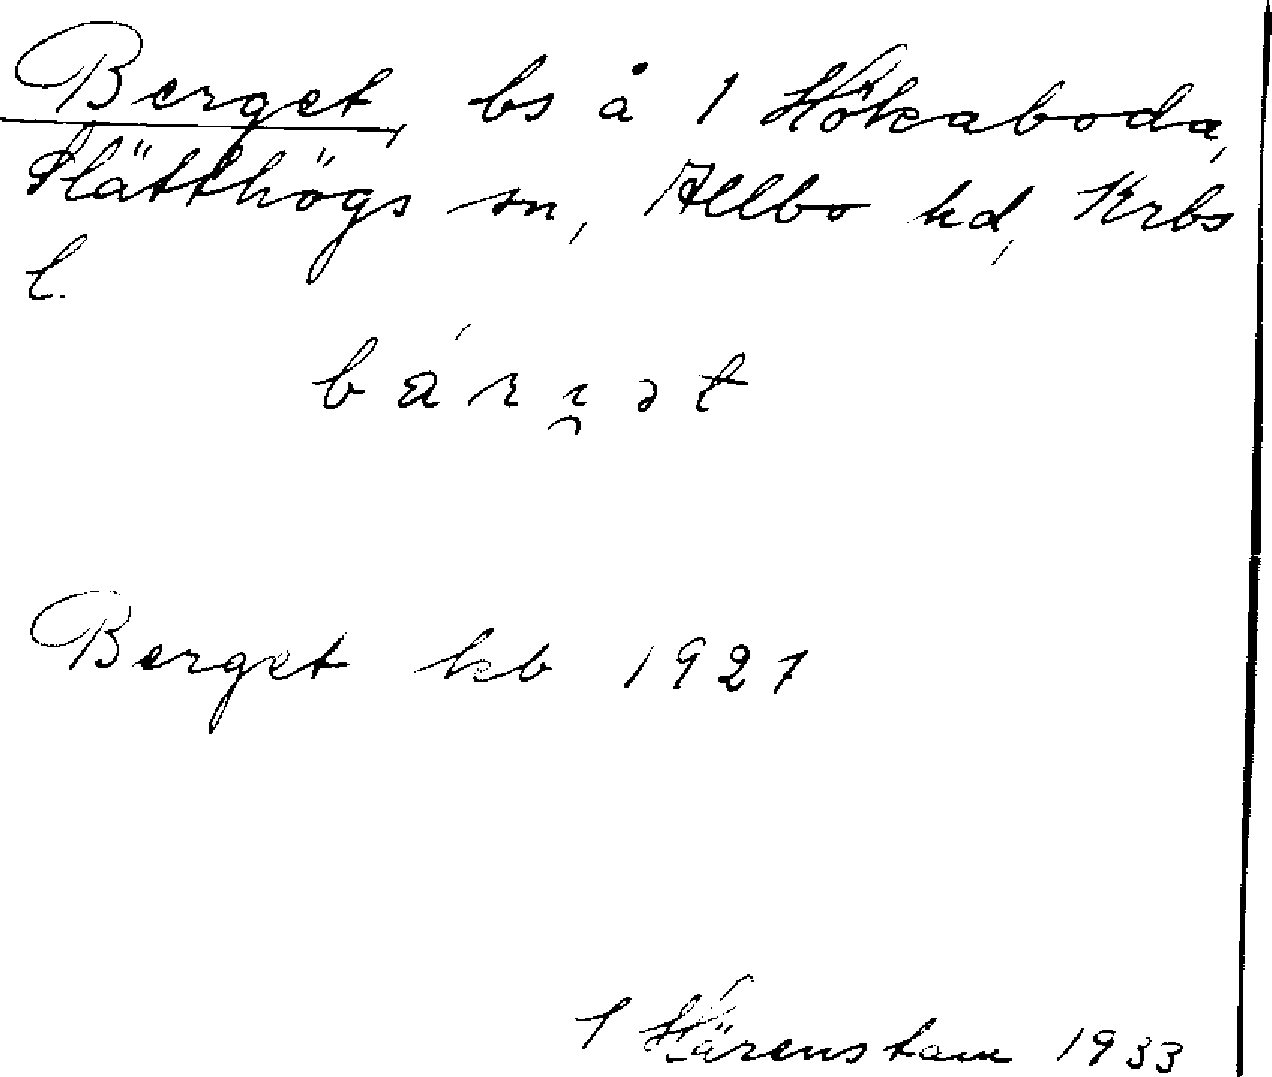 Berget, bs å 1 Hökaboda,
Slätthögs sn, Allbo hd, Krbs
l.
Berget kb 1921
1 Härenstam 1933